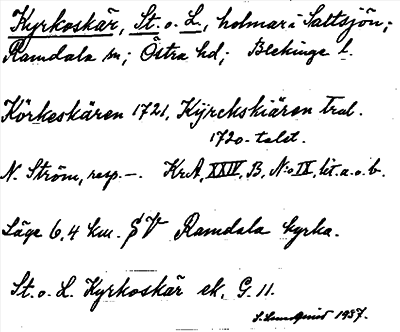 Kyrkoskär, St. o. L., holmar i Saltsjön;
Ramdala sn; Östra hd; Blekinge l.
Körkeskären 1721, Kyrckskiären trol.
1720-talet.
N. Ström, resp. –. KrA, XXIV, B, N:o IX, lit. a. o. b.
Läge 6,4 km. SV Ramdala kyrka.
St. o. L. Kyrkoskär ek. G. 11.
S. Lundquist 1937.